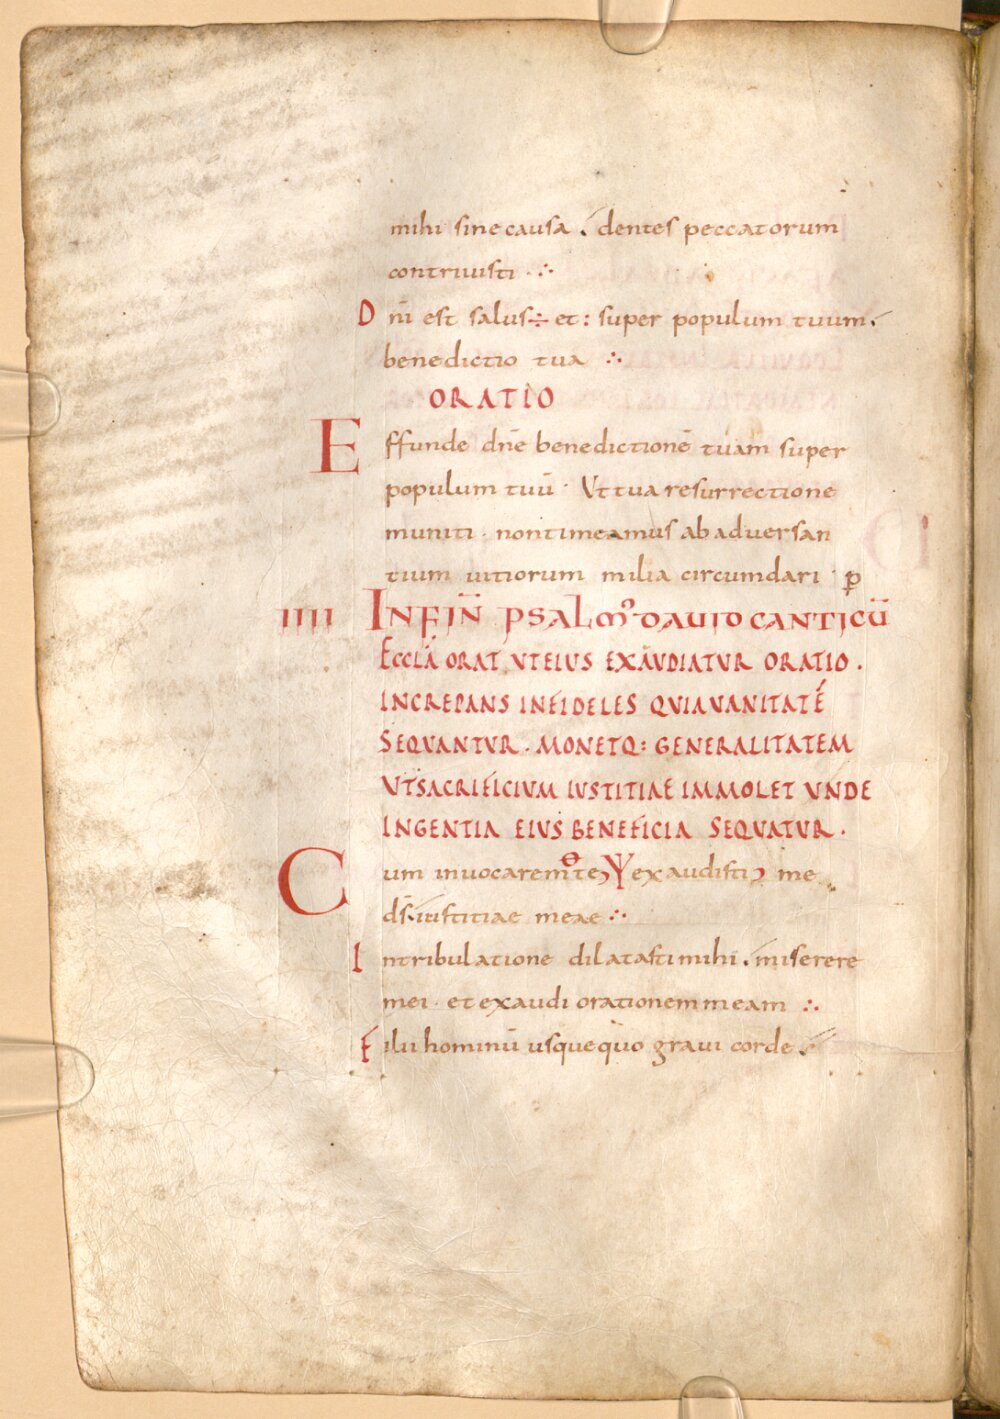 mihi sine causa . dentes peccatorum
contriuisti ·:·
D nī est salus÷ et: super populum tuum.
benedictio tua ·:·
ORATIO
Effunde dn̄e benedictionē tuam super
populum tuū · Ut tua resurrectione
muniti · non timeamus ab aduersan
tium uitiorum milia circumdari · p̄
IIII IN FIN̄ PSALM᾽ DAUID CANTICŪ
ECCLĀ ORAT UT EIUS EXAUDIATUR ORATIO .
INCREPANS INFIDELES QUIA UANITATĒ
SEQUANTUR . MONETQ: GENERALITATEM
UT SACRIFICIUM IUSTITIAE IMMOLET UNDE
INGENTIA EIUS BENEFICIA SEQUATUR .
Cum inuocarem te exaudisti me
ds̄ iustitiae meae ·:·
In tribulatione dilatasti mihi . miserere
mei · et exaudi orationem meam ·:·
Filii hominū usquequo graui corde .